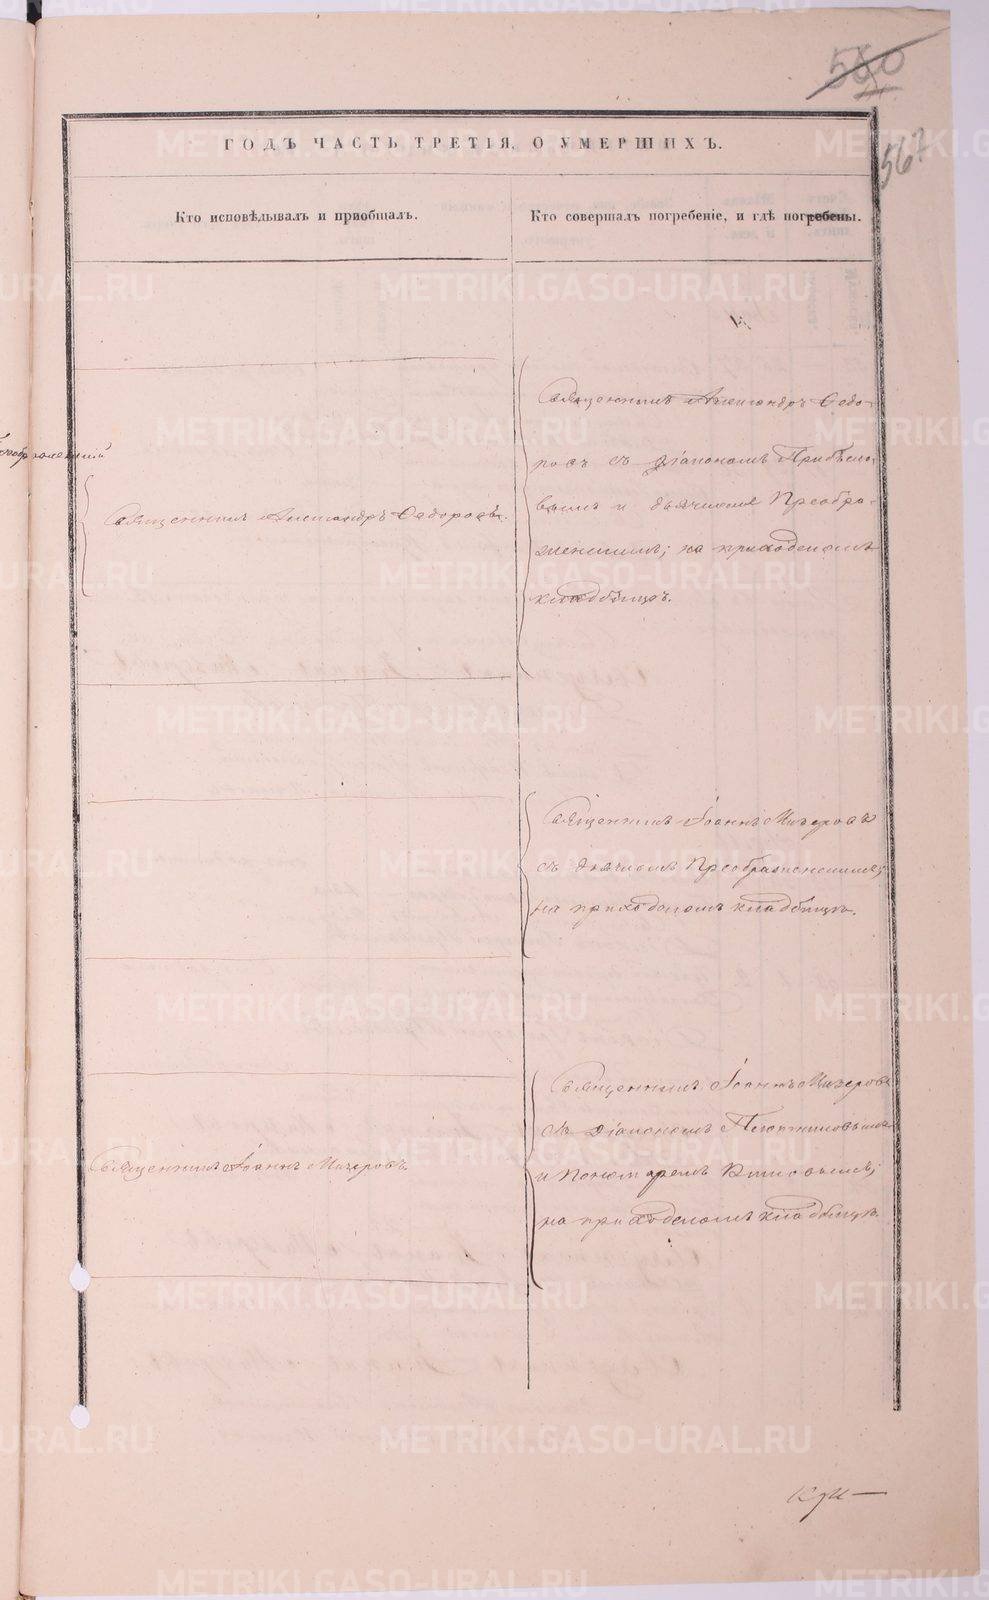 580
567
ГОДЪ ЧАСТЬ ТРЕТІЯ, О УМЕРШИХЪ.
Кто исповѣдывалъ и пріобщалъ.
Кто совершалъ погребеніе, и гдѣ погребены.
Священникъ Александръ Седо-
ровъ съ Діакономъ
Священникъ Александръ Седоровъ.
вымъ и дьячкомъ Преобра-
женскимъ; на приходскомъ
кладбищѣ.
Священникъ Іоаннъ Мичеровъ
съ дьячкомъ Преображенскимъ;
на приходскомъ кладбищѣ.
Священникъ Іоаннъ Мичеровъ
съ Діакономъ
Священникъ Іоаннъ Мичеровъ.
и Пономаремъ
на приходскомъ кладбищѣ.
METRIKI.GASO-URAL.RU